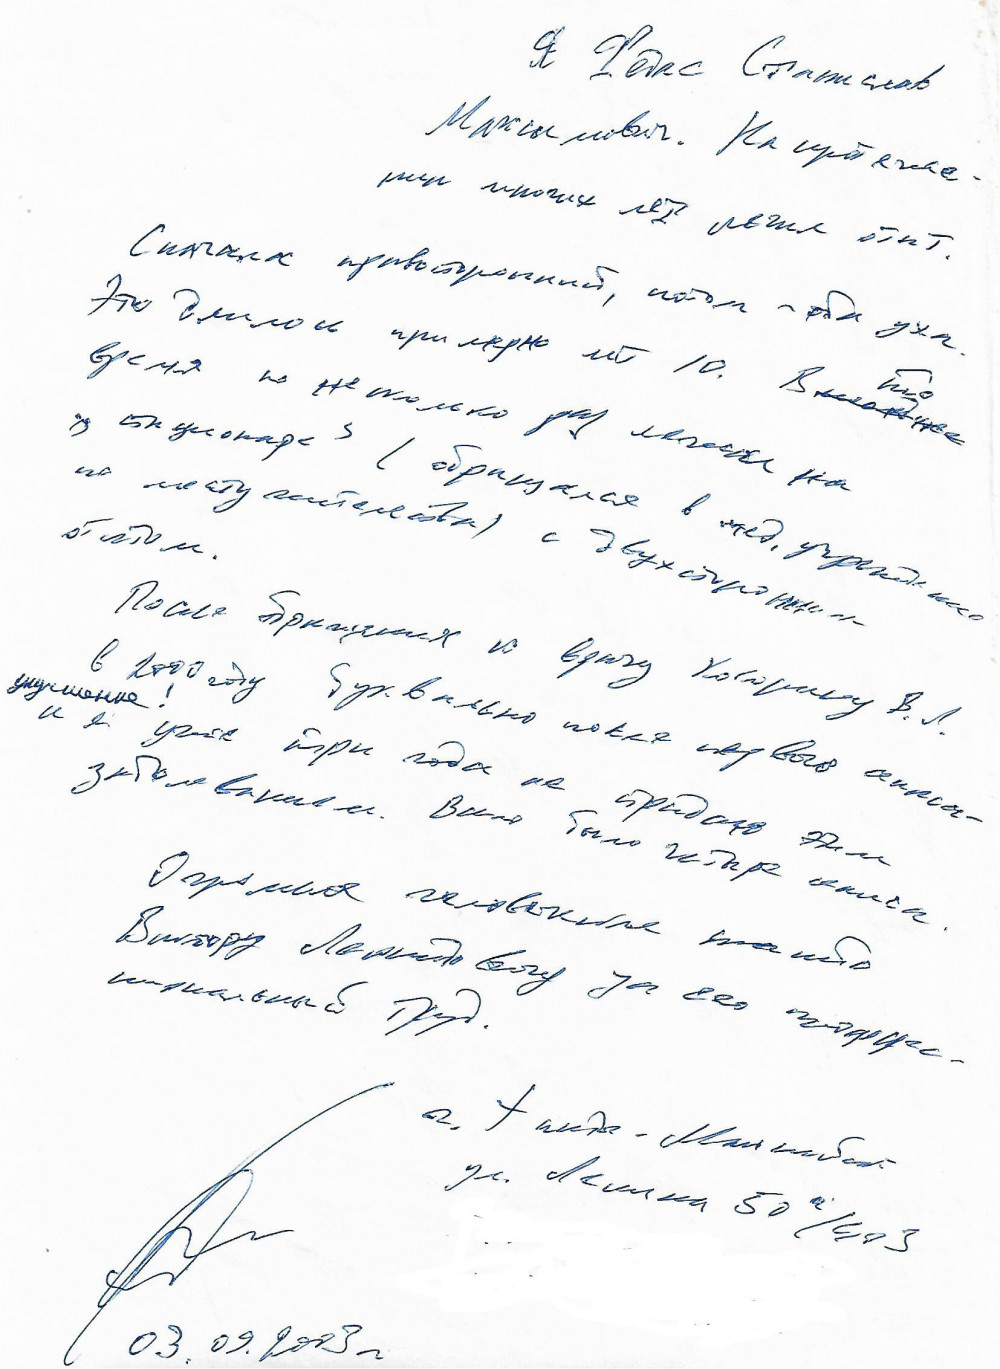 Я Федас Станислав
Максимович. На протяже-
нии многих лет лечил отит.
Сначала правосторонний, потом оба уха.
Это длилось примерно лет 10. В то
время по несколько раз лежал на
стационаре (обращался в мед. учреждение
по месту жительства) с двухсторонним
отитом.
После обращения к врачу Кокорину В. Л.
в 2000 году буквально после первого сеанса-
улучшение!
и я уже три года не страдаю этим
заболеванием. Всего было четыре сеанса.
Огромное человеческое спасибо
Виктору Леонидовичу за его профес-
сиональный труд.
г. Ханты-Мансийск
ул. Ленина 50 а/403
03.09.2003 г